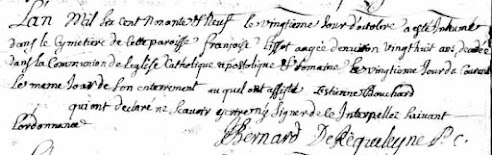 L'an Mil Six Cent Nonante et Neuf le vingtieme Jour d'octobre a esté Inhumé
dans le Cymetiere de Cette paroisse françoise Tissot aagée denviron Vingthuit ans decedée
dans la Communion de Leglise Catholique apostolique et Romaine le vingtieme Jour du Courant
Le meme Jour de son enterrement auquel ont assisté Estienne Bouchard
qui ont declaré ne scavoir escrire ny signer de ce Interpellez suivant
Lordonnance
Bernard De Requeleyne P. C.